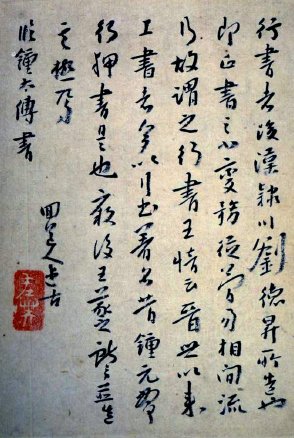 行書者後漢川劉德昇所造也
即正書之小變務從簡易相間流
行故謂之行書王愔云晉世以來
工書者多以行書著名昔鍾元常
行押書是也爾後王羲之獻之並造
其極焉
臨鍾太傅書